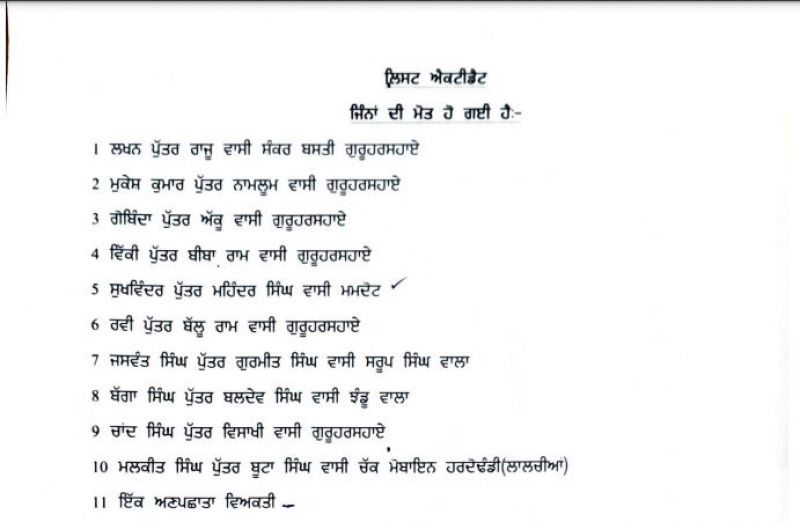 ਲਿਸਟ ਐਕਟੀਡੈਟ
ਜਿੰਨਾਂ ਦੀ ਮੌਤ ਹੋ ਗਈ ਹੈ:-
1 ਲਖਨ ਪੁੱਤਰ ਰਾਜੂ ਵਾਸੀ ਸੰਕਰ ਬਸਤੀ ਗੁਰੂਹਰਸਹਾਏ
2 ਮੁਕੇਸ਼ ਕੁਮਾਰ ਪੁੱਤਰ ਨਾਮਲੂਮ ਵਾਸੀ ਗੁਰੂਹਰਸਹਾਏ
3 ਗੋਬਿੰਦਾ ਪੁੱਤਰ ਅੱਕੂ ਵਾਸੀ ਗੁਰੂਹਰਸਹਾਏ
4 ਵਿੱਕੀ ਪੁੱਤਰ ਬੀਬਾ ਰਾਮ ਵਾਸੀ ਗੁਰੂਹਰਸਹਾਏ
5 ਸੁਖਵਿੰਦਰ ਪੁੱਤਰ ਮਹਿੰਦਰ ਸਿੰਘ ਵਾਸੀ ਮਮਦੋਟ
6 ਰਵੀ ਪੁੱਤਰ ਬੱਲੂ ਰਾਮ ਵਾਸੀ ਗੁਰੂਹਰਸਹਾਏ
7 ਜਸਵੰਤ ਸਿੰਘ ਪੁੱਤਰ ਗੁਰਮੀਤ ਸਿੰਘ ਵਾਸੀ ਸਰੂਪ ਸਿੰਘ ਵਾਲਾ
8 ਬੱਗਾ ਸਿੰਘ ਪੁੱਤਰ ਬਲਦੇਵ ਸਿੰਘ ਵਾਸੀ ਝੰਡੂ ਵਾਲਾ
9 ਚਾਂਦ ਸਿੰਘ ਪੁੱਤਰ ਵਿਸਾਖੀ ਵਾਸੀ ਗੁਰੂਹਰਸਹਾਏ
10 ਮਲਕੀਤ ਸਿੰਘ ਪੁੱਤਰ ਬੂਟਾ ਸਿੰਘ ਵਾਸੀ ਚੱਕ ਮੋਬਾਇਨ ਹਰਦੋਢੰਡੀ(ਲਾਲਚੀਆਂ)
11 ਇੱਕ ਅਣਪਛਾਤਾ ਵਿਅਕਤੀ